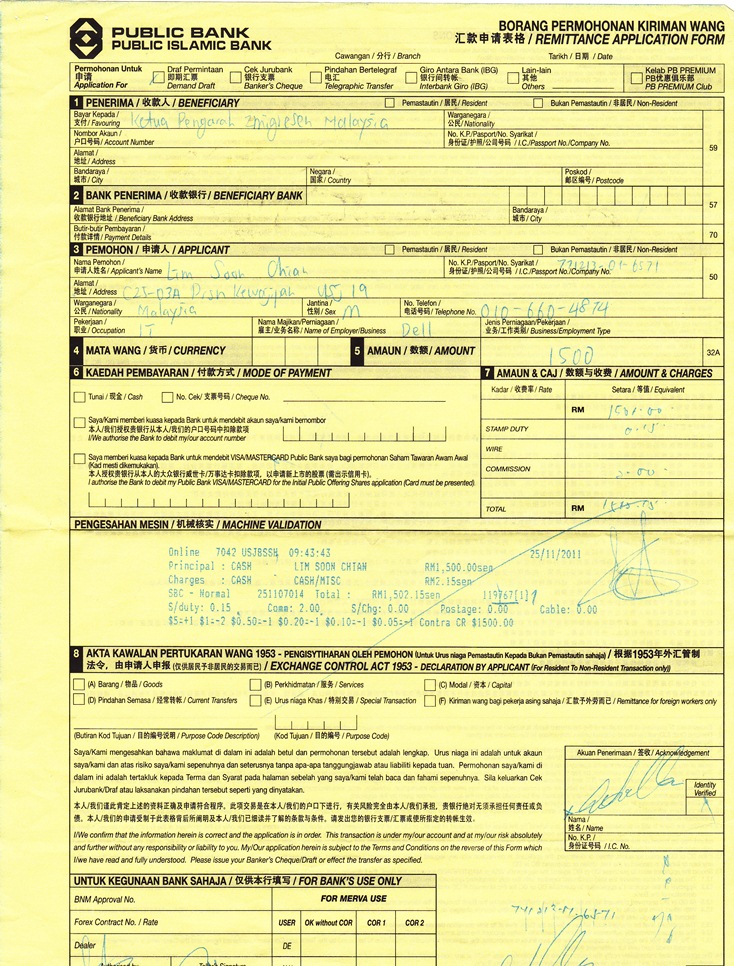 PUBLIC BANK
PUBLIC ISLAMIC BANK
BORANG PERMOHONAN KIRIMAN WANG
汇款申请表格 / REMITTANCE APPLICATION FORM
Cawangan / 分行 / Branch
Tarikh / 日期 / Date
Permohonan Untuk
申请
Application For
Draf Permintaan
即期汇票
Demand Draft
Cek Jurubank
银行支票
Banker's Cheque
Pindahan Bertelegraf
电汇
Telegraphic Transfer
Giro Antara Bank (IBG)
银行间转帐
Interbank Giro (IBG)
Lain-lain
其他
Others
Kelab PB PREMIUM
PB优惠俱乐部
PB PREMIUM Club
1 PENERIMA / 收款人 / BENEFICIARY
Pemastautin / 居民 / Resident
Bukan Pemastautin / 非居民 / Non-Resident
Bayar Kepada /
支付 / Favouring
Ketua Pengarah Malaysia
Warganegara /
公民 / Nationality
Nombor Akaun /
户口号码 / Account Number
No. K.P/Pasport/No. Syarikat /
身份证/护照/公司号码 / I.C./Passport No./Company No.
59
Alamat /
地址 / Address
Bandaraya /
城市 / City
Negara /
国家 / Country
Poskod /
邮区编号 / Postcode
2 BANK PENERIMA / 收款银行 / BENEFICIARY BANK
57
Alamat Bank Penerima /
收款银行地址 / Beneficiary Bank Address
Bandaraya /
城市 / City
Butir-butir Pembayaran /
付款详情 / Payment Details
70
3 PEMOHON / 申请人 / APPLICANT
Pemastautin / 居民 / Resident
Bukan Pemastautin / 非居民 / Non-Resident
Nama Pemohon /
申请人姓名 / Applicant's Name
Lim Soon Chian
No. K.P/Pasport/No. Syarikat /
身份证/护照/公司号码 / I.C./Passport No./Company No.
771213-01-6571
50
Alamat /
地址 / Address
C25-03A USJ 19
Warganegara /
公民 / Nationality
Malaysia
Jantina /
性别 / Sex
M
No. Telefon /
电话号码 / Telephone No.
010-660-4874
Pekerjaan /
职业 / Occupation
IT
Nama Majikan/Perniagaan /
雇主/业务名称 / Name of Employer/Business
Dell
Jenis Perniagaan/Pekerjaan /
业务/工作类别 / Business/Employment Type
4 MATA WANG / 货币 / CURRENCY
5 AMAUN / 数额 / AMOUNT
1500
32A
6 KAEDAH PEMBAYARAN / 付款方式 / MODE OF PAYMENT
7 AMAUN & CAJ / 数额与收费 / AMOUNT & CHARGES
Kadar / 收费率 / Rate
Setara / 等值 / Equivalent
Tunai / 现金 / Cash
No. Cek/ 支票号码 / Cheque No.
RM
Saya/Kami memberi kuasa kepada Bank untuk mendebit akaun saya/kami bernombor
本人/我们授权银行从本人/我们的户口号码中扣除款项
I/We authorise the Bank to debit my/our account number
STAMP DUTY
0.15
WIRE
Saya memberi kuasa kepada Bank untuk mendebit VISA/MASTERCARD Public Bank saya bagi permohonan Saham Tawaran Awam Awal
(Kad mesti dikemukakan).
本人授权银行从本人的大众银行威世卡/万事达卡扣除款项，以申请新上市的股票 (需出示信用卡)。
I authorise the Bank to debit my Public Bank VISA/MASTERCARD for the Initial Public Offering Shares application (Card must be presented)
COMMISSION
2.00
TOTAL
RM
PENGESAHAN MESIN / 机械核实 / MACHINE VALIDATION
Online 7042 USJBSSH 09:43:43 25/11/2011
Principal : CASH LIM SOON CHIAN RM1,500.00sen
Charges : CASH CASH/MISC RM2.15sen
SBC - Normal 251107014 Total : RM1,502.15sen 119767[1]
S/duty: 0.15 Comm: 2.00 S/Chg: 0.00 Postage: 0.00 Cable: 0.00
$5=+1 $1=-2 $0.50=-1 $0.20=-1 $0.10=-1 $0.05=-1 Contra CR $1500.00
8 AKTA KAWALAN PERTUKARAN WANG 1953 - PENGISYTIHARAN OLEH PEMOHON (Untuk Urus niaga Pemastautin Kepada Bukan Pemastautin sahaja) / 根据1953年外汇管制
法令，由申请人申报 (仅供居民予非居民的交易而已) / EXCHANGE CONTROL ACT 1953 - DECLARATION BY APPLICANT (For Resident To Non-Resident Transaction only)
(A) Barang / 物品 / Goods
(B) Perkhidmatan / 服务 / Services
(C) Modal / 资本 / Capital
(D) Pindahan Semasa / 经常转帐 / Current Transfers
(E) Urus niaga Khas / 特别交易 / Special Transaction
(F) Kiriman wang bagi pekerja asing sahaja / 汇款予外劳而已 / Remittance for foreign workers only
(Butiran Kod Tujuan / 目的编号说明 / Purpose Code Description)
(Kod Tujuan / 目的编号 / Purpose Code)
Saya/Kami mengesahkan bahawa maklumat di dalam ini adalah betul dan permohonan tersebut adalah lengkap. Urus niaga ini adalah untuk akaun
saya/kami dan atas risiko saya/kami sepenuhnya dan seterusnya tanpa apa-apa tanggungjawab atau liabiliti kepada tuan. Permohonan saya/kami di
dalam ini adalah tertakluk kepada Terma dan Syarat pada halaman sebelah yang saya/kami telah baca dan fahami sepenuhnya. Sila keluarkan Cek
Jurubank/Draf atau laksanakan pindahan tersebut seperti yang dinyatakan.
本人/我们谨此肯定上述的资料正确及申请符合程序。此项交易是在本人/我们的户口下进行，有关风险完全由本人/我们承担，贵银行绝对无须承担任何责任或负
债。本人/我们的申请受制于此表格背后所阐明及本人/我们已细读并了解的条款与条件。请发出您的银行支票/汇票或使所指定的转帐生效。
I/We confirm that the information herein is correct and the application is in order. This transaction is under my/our account and at my/our risk absolutely
and further without any responsibility or liability to you. My/Our application herein is subject to the Terms and Conditions on the reverse of this Form which
I/we have read and fully understood. Please issue your Banker's Cheque/Draft or effect the transfer as specified.
Akuan Penerimaan / 签收 / Acknowledgement
Identity
Verified
Nama /
姓名 / Name
No. K.P. /
身份证号码 / I.C. No.
UNTUK KEGUNAAN BANK SAHAJA / 仅供本行填写 / FOR BANK'S USE ONLY
BNM Approval No.
FOR MERVA USE
Forex Contract No. / Rate
USER
OK without COR
COR 1
COR 2
Dealer
DE